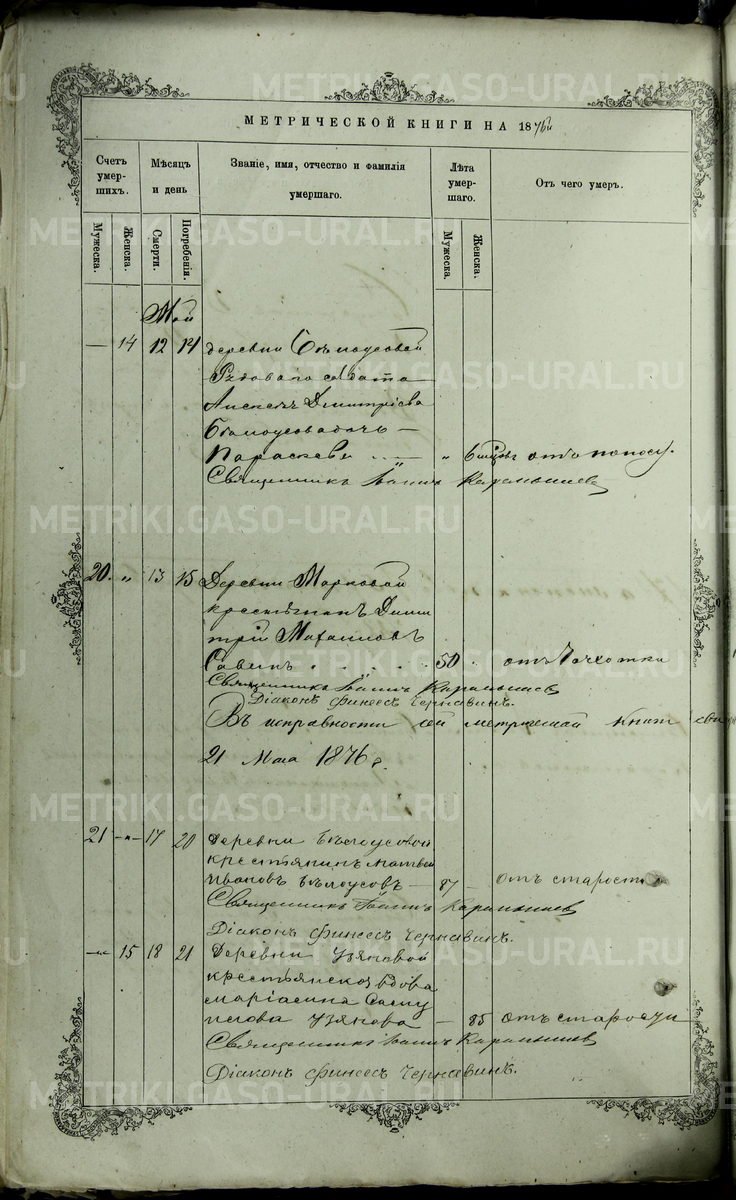 МЕТРИЧЕСКОЙ КНИГИ НА 1876й
Счетъ умершихъ.
Мѣсяцъ и день
Званіе, имя, отчество и фамилія умершаго.
Лѣта умершаго.
Отъ чего умеръ.
Мужеска.
Женска.
Смерти.
Погребенія.
Мужеска.
Женска.
Май
— 14 12 14 деревни Бѣлоусовой
Рядоваго солдата
Алексѣя Димитріева
Бѣлоусова дочь —
Параскева — " 6 мѣсяц. отъ поносу.
Священникъ Іоаннъ Карамышевъ
20. " 13 15 Деревни Марковой
крестьянинъ Дими
трій Михаиловъ
Савинъ . . . . . 50 . отъ чахотки
Священникъ Іоаннъ Карамышевъ
Діаконъ Финеесъ Чернавинъ.
Въ исправности сей метрической книги
21 Мая 1876 г.
21 —"— 17 20 Деревни Бѣлоусовой
крестьянинъ Матвей
Ивановъ Бѣлоусовъ — 87 — отъ старости
Священникъ Іоаннъ Карамышевъ
Діаконъ Финеесъ Чернавинъ.
—"— 15 18 21 Деревни Узяновой
крестьянская вдова
Узянова — 85 отъ старости
Священникъ Іоаннъ Карамышевъ
Діаконъ Финеесъ Чернавинъ.
METRIKI.GASO-URAL.RU